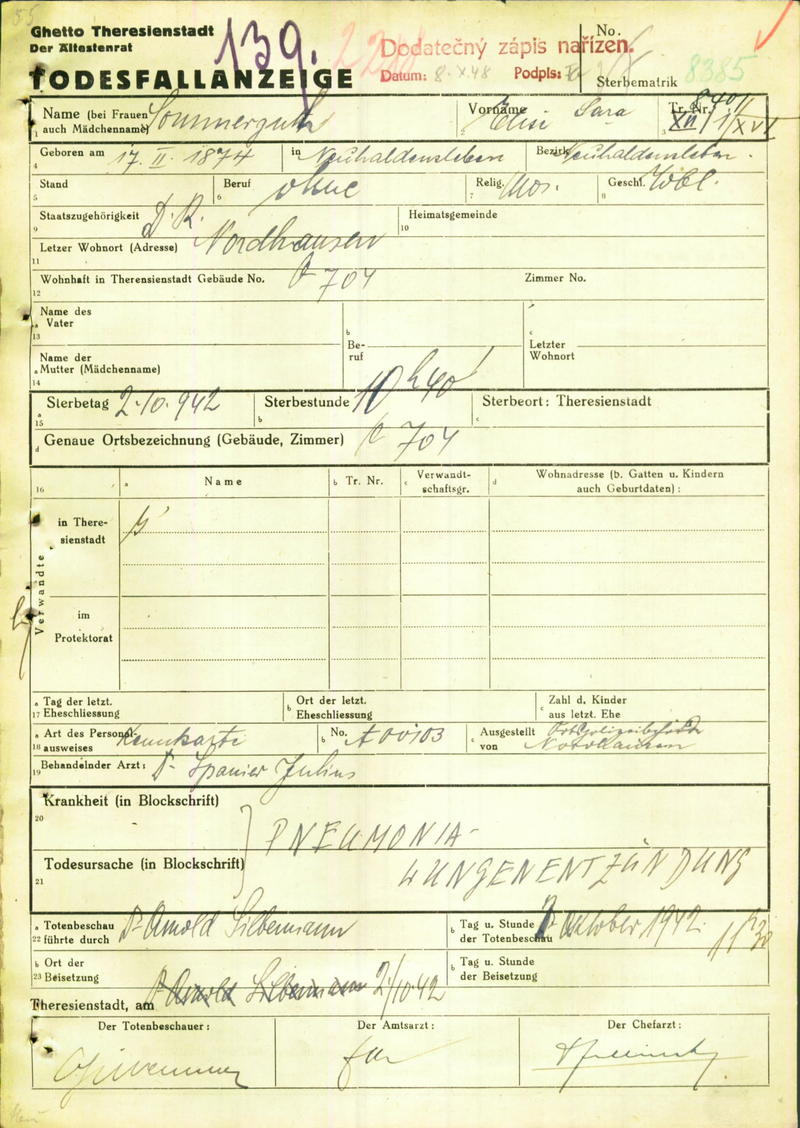 55
Ghetto Theresienstadt
Der Ältestenrat
139.
Dodatečný zápis nařízen.
Datum: 8. X. 48 Podpis:
No.
TODESFALLANZEIGE
Sterbematrik 8385
1 Name (bei Frauen auch Mädchenname) Sommerguth
2 Vorname Elise Sara
3 Tr. Nr.
4 Geboren am 17. II. 1874 in Neuhaldensleben Bezirk Neuhaldensleben.
5 Stand
6 Beruf ohne
7 Relig. Mos.
8 Geschl. Wbl.
9 Staatszugehörigkeit D. R.
10 Heimatsgemeinde
11 Letzer Wohnort (Adresse) Nordhausen
12 Wohnhaft in Theresienstadt Gebäude No. 704 Zimmer No.
13 a Name des Vater
14 a Name der Mutter (Mädchenname)
b Beruf
c Letzter Wohnort
15 a Sterbetag 2.10.942
b Sterbestunde 10 h 40'
c Sterbeort: Theresienstadt
d Genaue Ortsbezeichnung (Gebäude, Zimmer) 704
16 a Name b Tr. Nr. c Verwandtschaftsgr. d Wohnadresse (b. Gatten u. Kindern auch Geburtdaten):
Verwandte
in Theresienstadt
im Protektorat
17 a Tag der letzt. Eheschliessung
b Ort der letzt. Eheschliessung
c Zahl d. Kinder aus letzt. Ehe
18 a Art des Personalausweises Kennkarte
b No. A 00103
c Ausgestellt von Ortspolizeibehörde Nordhausen
19 Behandelnder Arzt: Dr Spanier Julius
20 Krankheit (in Blockschrift) PNEUMONIA -
21 Todesursache (in Blockschrift) LUNGENENTZÜNDUNG
22 a Totenbeschau führte durch Dr Arnold Silbermann
b Tag u. Stunde der Totenbeschau Oktober 1942. 11 h 30
23 b Ort der Beisetzung
b Tag u. Stunde der Beisetzung
Theresienstadt, am Dr Arnold Silbermann 2./10.42
Der Totenbeschauer:
Der Amtsarzt:
Der Chefarzt: